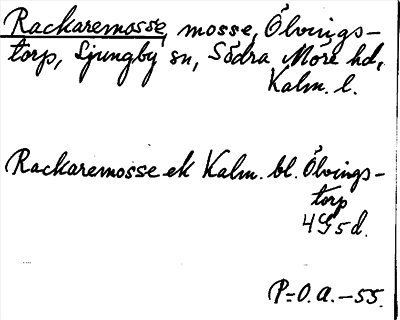 Rackaremosse, mosse, Ölvings-
torp, Ljungby sn, Södra Möre hd,
Kalm. l.
Rackaremosse ek Kalm. bl. Ölvings-
torp
4G5d.
P=O.A.-55.